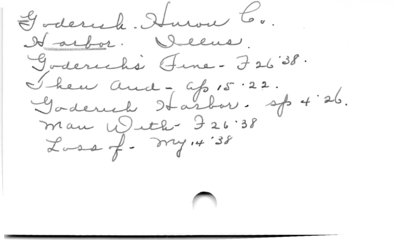 Goderich. Huron Co.
Harbor. Illus.
Goderich's Fine - F 26 '38.
Then and - ap 15 '22.
Goderich Harbor. sp 4 '26.
Man With - F 26 '38
Loss of - My 14 '38